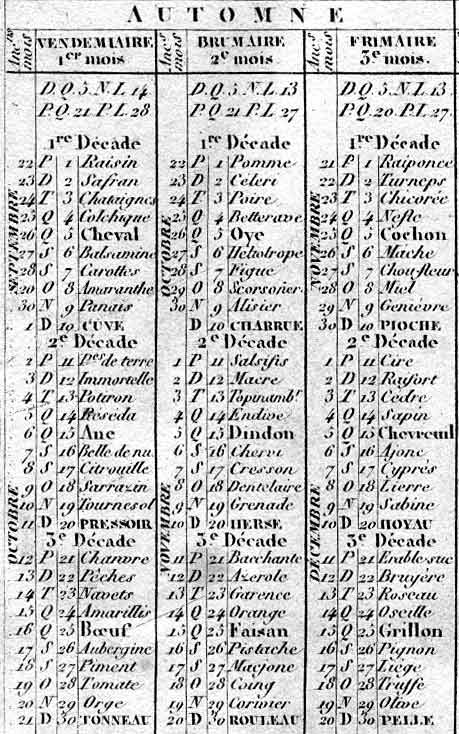 AUTOMNE
Anc.ns mois
VENDEMIAIRE
1er mois
D.Q. 5. N.L. 14
P.Q. 21 P.L. 28
1re Décade
SEPTEMBRE
22 P 1 Raisin
23 D 2 Safran
24 T 3 Chataignes
25 Q 4 Colchique
26 Q 5 Cheval
27 S 6 Balsamine
28 S 7 Carottes
29 O 8 Amaranthe
30 N 9 Panais
1 D 10 CUVE
2e Décade
OCTOBRE
2 P 11 Pes de terre
3 D 12 Immortelle
4 T 13 Potiron
5 Q 14 Réseda
6 Q 15 Ane
7 S 16 Belle de nu.
8 S 17 Citrouille
9 O 18 Sarrazin
10 N 19 Tournesol
11 D 20 PRESSOIR
3e Décade
12 P 21 Chanvre
13 D 22 Pêches
14 T 23 Navets
15 Q 24 Amarillis
16 Q 25 Bœuf
17 S 26 Aubergine
18 S 27 Piment
19 O 28 Tomate
20 N 29 Orge
21 D 30 TONNEAU
Anc.s mois
BRUMAIRE
2e mois
D.Q. 5. N.L 13
P.Q. 21 P.L 27
1re Décade
OCTOBRE
22 P 1 Pomme
23 D 2 Céleri
24 T 3 Poire
25 Q 4 Betterave
26 Q 5 Oye
27 S 6 Héliotrope
28 S 7 Figue
29 O 8 Scorsoner
30 N 9 Alisier
D 10 CHARRUE
2e Décade
NOVEMBRE
1 P 11 Salsifis
2 D 12 Macre
3 T 13 Topinambr
4 Q 14 Endive
5 Q 15 Dindon
6 S 16 Chervi
7 S 17 Cresson
8 O 18 Dentelaire
9 N 19 Grenade
10 D 20 HERSE
3e Décade
11 P 21 Bacchante
12 D 22 Azerole
13 T 23 Garence
14 Q 24 Orange
15 Q 25 Faisan
16 S 26 Pistache
17 S 27 Macjonc
18 O 28 Coing
19 N 29 Cormier
20 D 30 ROULEAU
Anc.s mois
FRIMAIRE
3e mois.
D.Q. 5. N.L 13.
P.Q. 20. P.L 27.
1re Décade
NOVEMBRE
21 P 1 Raiponce
22 D 2 Turneps
23 T 3 Chicorée
24 Q 4 Nefle
25 Q 5 Cochon
26 S 6 Mache
27 S 7 Chou-fleur
28 O 8 Miel
29 N 9 Genièvre
30 D 10 PIOCHE
2e Décade
DECEMBRE
1 P 11 Cire
2 D 12 Raifort
3 T 13 Cédre
4 Q 14 Sapin
5 Q 15 Chevreuil
6 S 16 Ajonc
7 S 17 Cyprés
8 O 18 Lierre
9 N 19 Sabine
10 D 20 HOYAU
3e Décade
11 P 21 Erable-suc
12 D 22 Bruyère
13 T 23 Roseau
14 Q 24 Oseille
15 Q 25 Grillon
16 S 26 Pignon
17 S 27 Liége
18 O 28 Truffe
19 N 29 Olive
20 D 30 PELLE